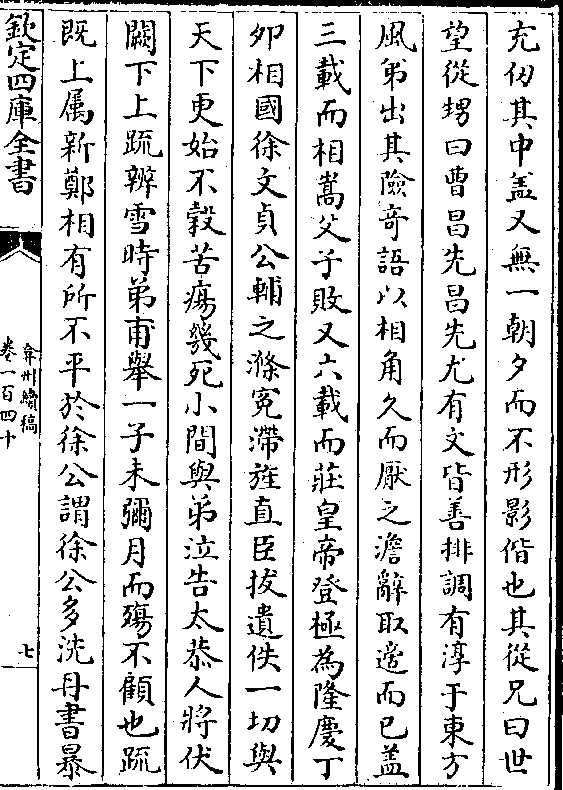 充仞其中盖又無一朝夕而不形影偕也其從兄曰世
望從甥曰曹昌先昌先尤有文皆善排調有淳于東方
風弟出其險竒語以相角久而厭之澹辭取適而已盖
三載而相嵩父子敗又六載而莊皇帝登極為隆慶丁
夘相國徐文貞公輔之滌寃滯旌直臣拔遺佚一切與
天下更始不榖苦瘍幾死小間與弟泣告太恭人將伏
闕下上疏辨雪時弟甫舉一子未彌月而殤不顧也疏
既上属新鄭相有所不平於徐公謂徐公多洗丹書暴
欽定四庫全書
弇州續稿
卷一百四十
七